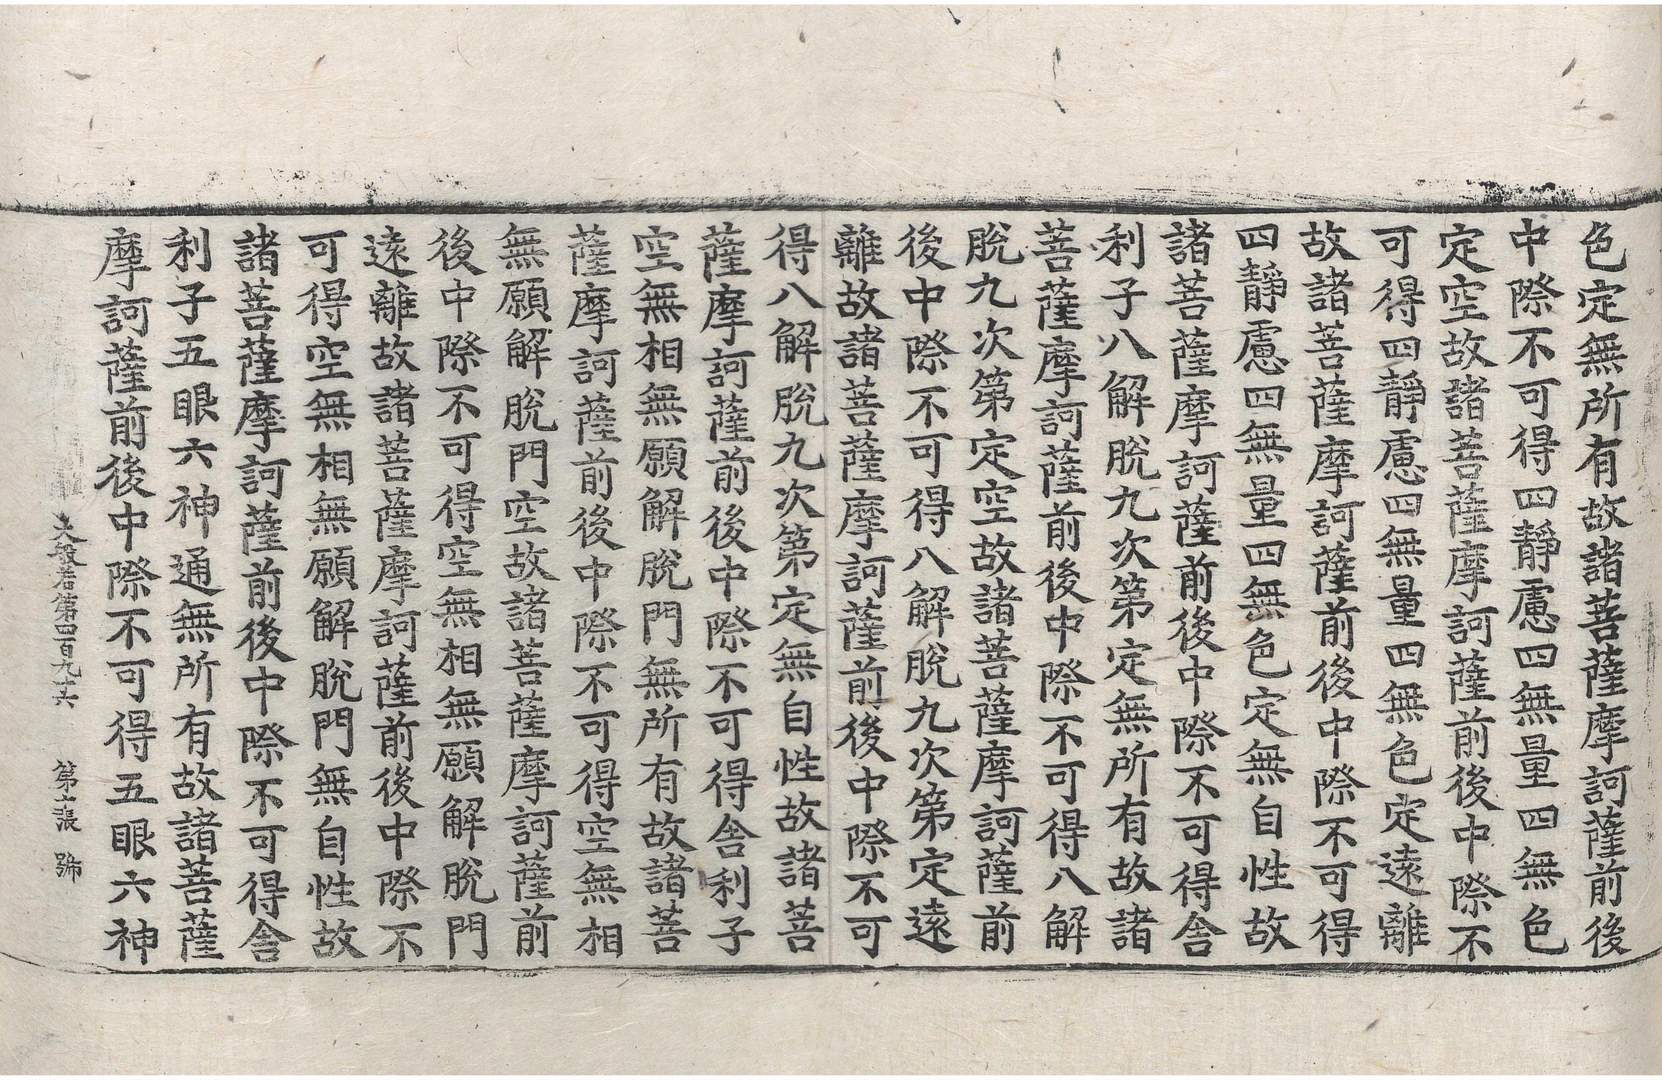 色定無所有故諸菩薩摩訶薩前後
中際不可得四靜慮四無量四無色
定空故諸菩薩摩訶薩前後中際不
可得四靜慮四無量四無色定遠離
故諸菩薩摩訶薩前後中際不可得
四靜慮四無量四無色定無自性故
諸菩薩摩訶薩前後中際不可得舍
利子八解脫九次第定無所有故諸
菩薩摩訶薩前後中際不可得八解
脫九次第定空故諸菩薩摩訶薩前
後中際不可得八解脫九次第定遠
離故諸菩薩摩訶薩前後中際不可
得八解脫九次第定無自性故諸菩
薩摩訶薩前後中際不可得舍利子
空無相無願解脫門無所有故諸菩
薩摩訶薩前後中際不可得空無相
無願解脫門空故諸菩薩摩訶薩前
後中際不可得空無相無願解脫門
遠離故諸菩薩摩訶薩前後中際不
可得空無相無願解脫門無自性故
諸菩薩摩訶薩前後中際不可得舍
利子五眼六神通無所有故諸菩薩
摩訶薩前後中際不可得五眼六神
大般若第四百九十六 第張 號